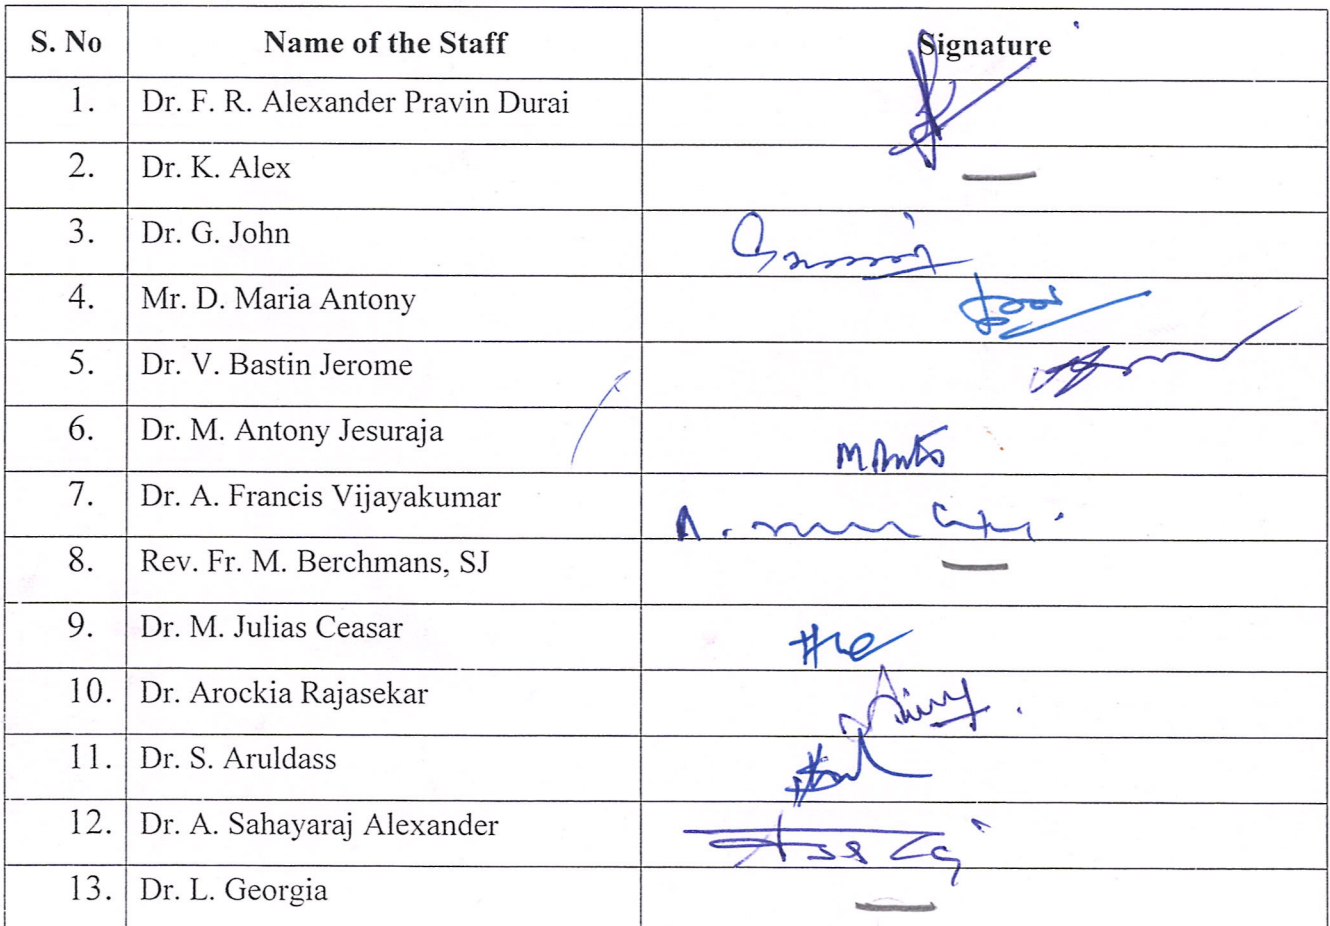 S. No Name of the Staff Signature
1. Dr. F. R. Alexander Pravin Durai
2. Dr. K. Alex
3. Dr. G. John
4. Mr. D. Maria Antony
5. Dr. V. Bastin Jerome
6. Dr. M. Antony Jesuraja
7. Dr. A. Francis Vijayakumar
8. Rev. Fr. M. Berchmans, SJ
9. Dr. M. Julias Ceasar
10. Dr. Arockia Rajasekar
11. Dr. S. Aruldass
12. Dr. A. Sahayaraj Alexander
13. Dr. L. Georgia